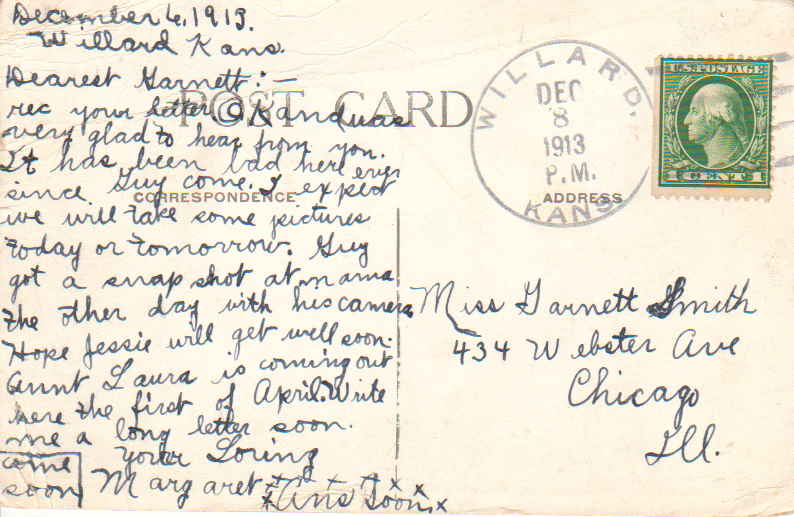 December 6, 1913.
Willard Kans.
Dearest Garnett:—
rec your letter O.K. and was
very glad to hear from you.
It has been bad here ever
since Guy come. I expect
we will take some pictures
today or tomorrow. Guy
got a snap shot at mama
the other day with his camera
Hope Jessie will get well soon.
Aunt Laura is coming out
here the first of April. Write
me a long letter soon.
your Loving
Margaret
Ans Soon
come
soon
POST CARD
CORRESPONDENCE
ADDRESS
WILLARD,
DEC
8
1913
P.M.
KANS.
U.S. POSTAGE
1 CENT 1
Miss Garnett Smith
434 Webster Ave
Chicago
Ill.